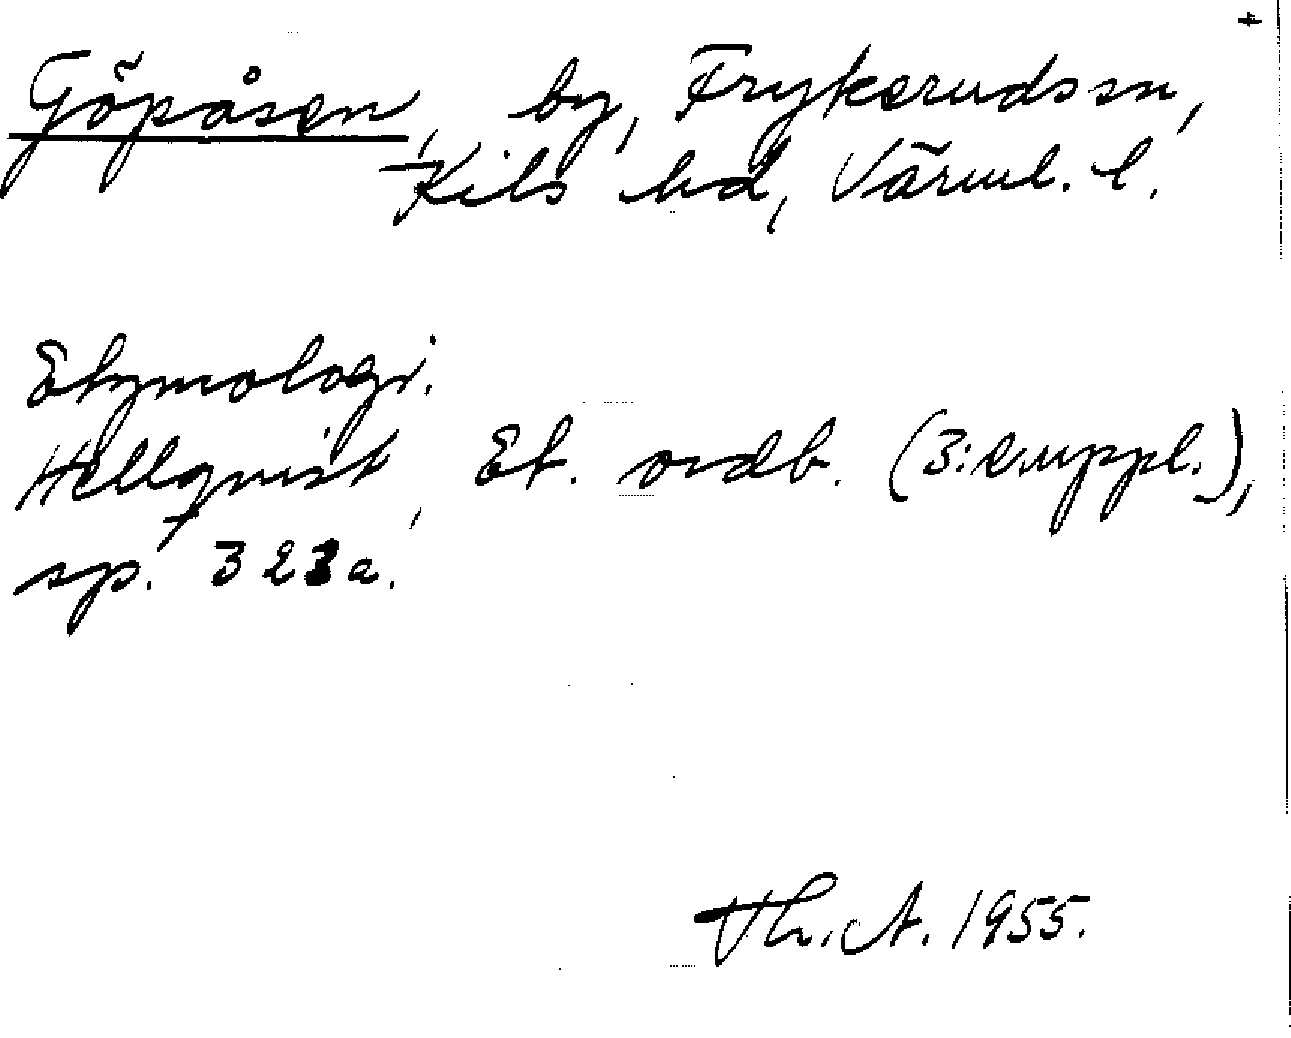 +
Göpåsen, by, Frykeruds sn,
Kils hd, Värml. l.
Etymologi.
Hellqvist, Et. ordb. (3:e uppl.),
sp. 323a.
Th. A. 1955.